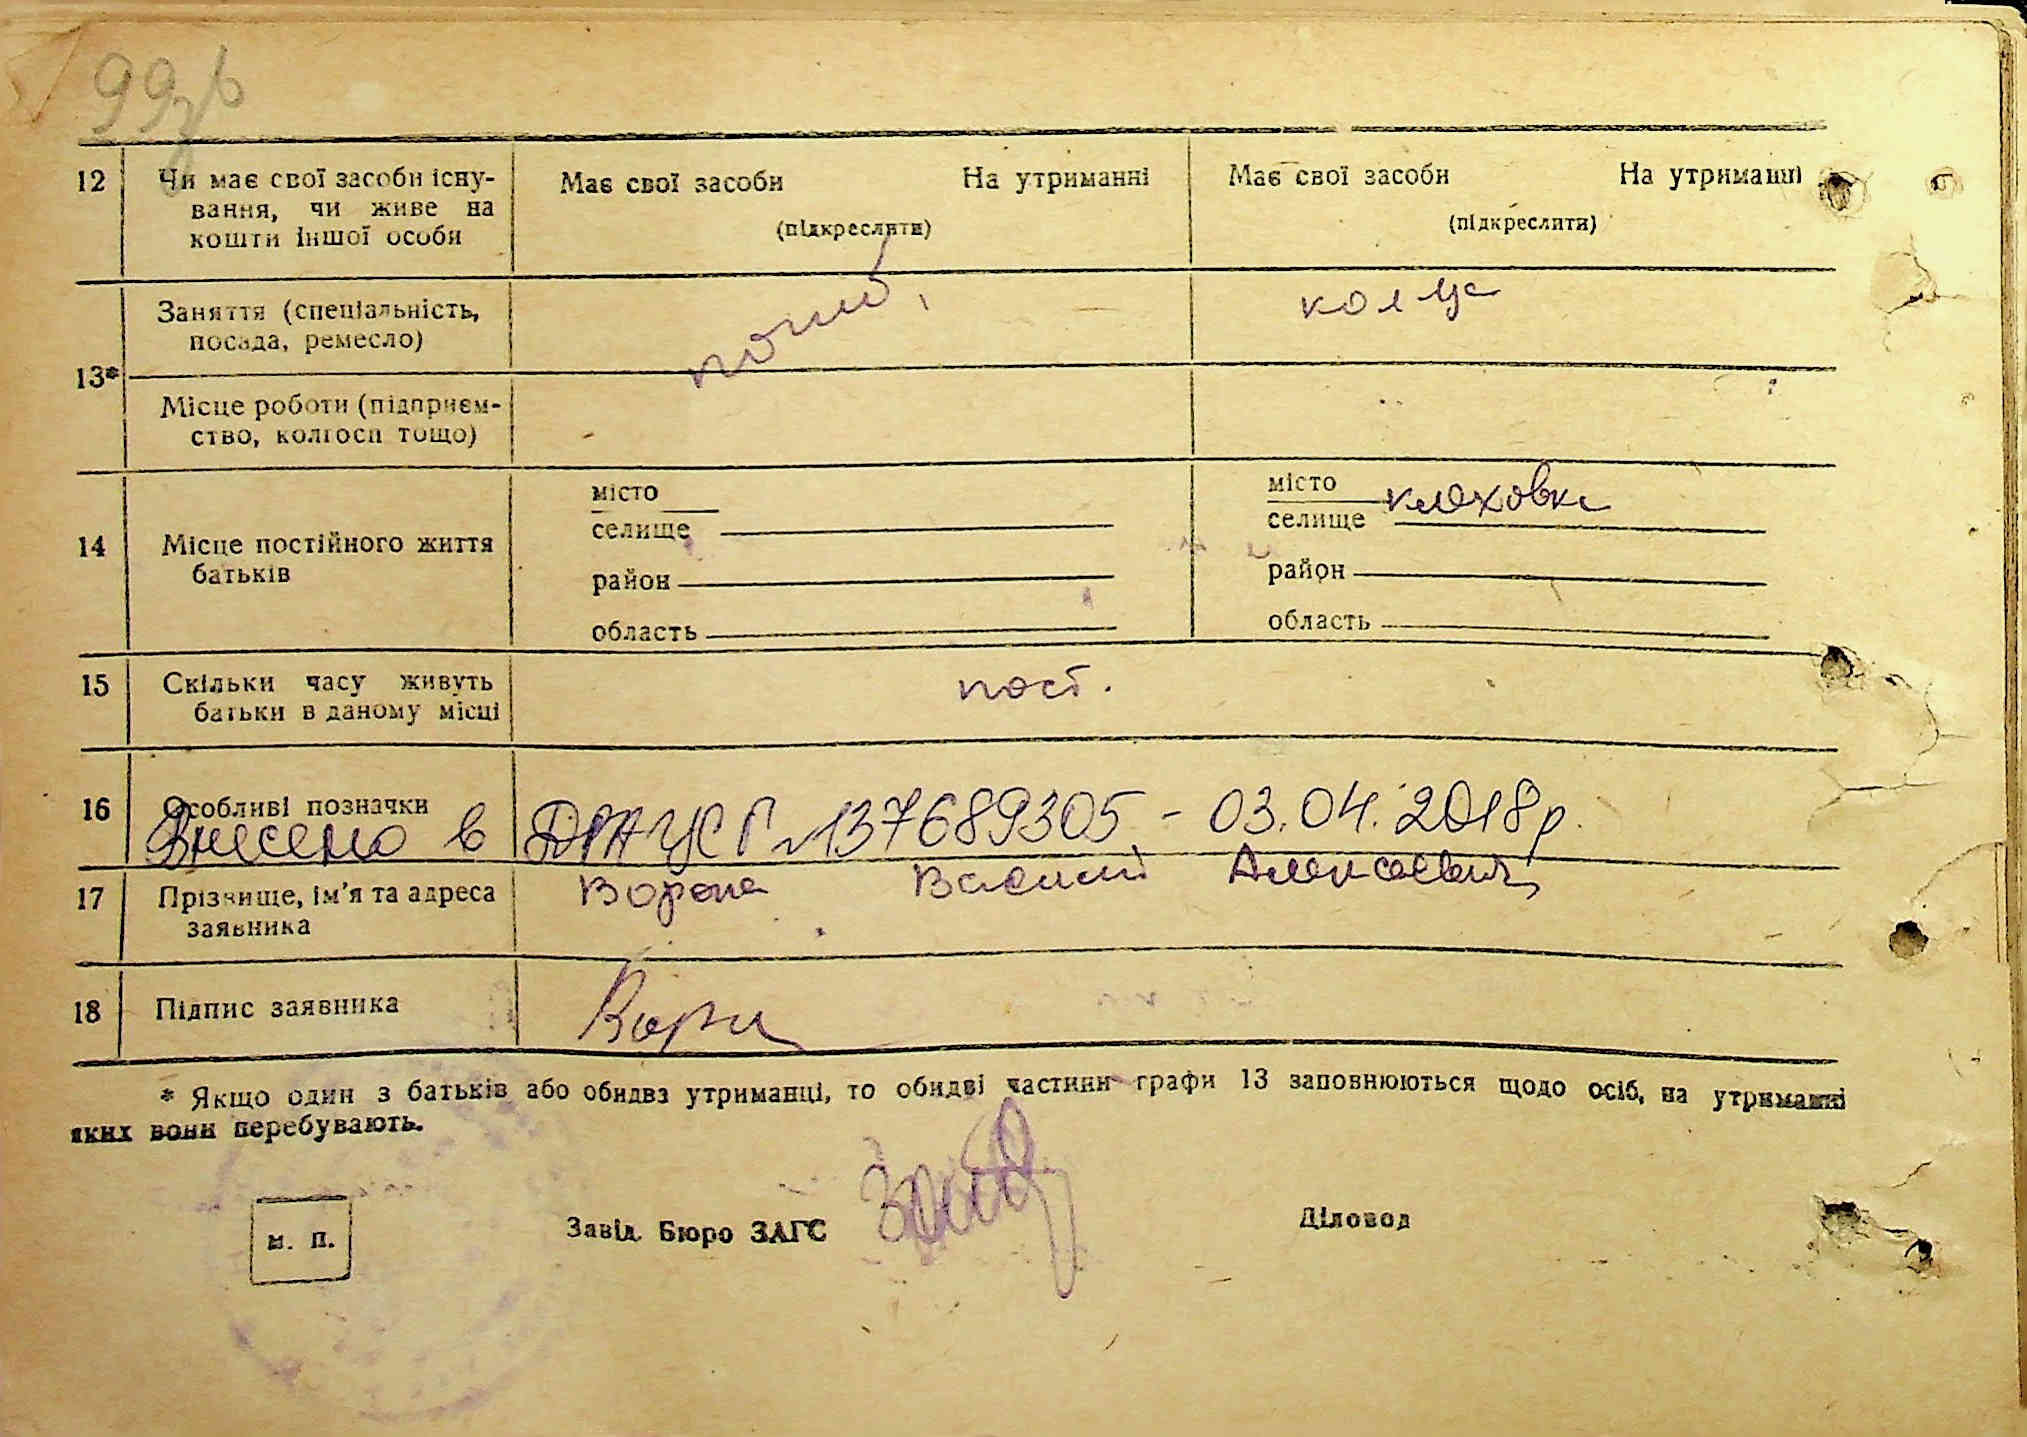 99зв
12 Чи має свої засоби існу- Має свої засоби На утриманні Має свої засоби На утриманні
вання, чи живе на (підкреслити) (підкреслити)
кошти іншої особи
Заняття (спеціальність, кол-ца
посада, ремесло)
13*
Місце роботи (підприєм-
ство, колгосп тощо)
місто місто
селище селище
14 Місце постійного життя
батьків
район район
область область
15 Скільки часу живуть пост.
батьки в даному місці
16 Особливі позначки
Внесено в ДРАЦСГ 137689305 - 03.04.2018р.
17 Прізвище, ім'я та адреса Ворона Василий Алексеевич
заявника
18 Підпис заявника
* Якщо один з батьків або обидва утриманці, то обидві частини графи 13 заповнюються щодо осіб, на утриманні
яких вони перебувають.
м. п. Завід. Бюро ЗАГС Діловод